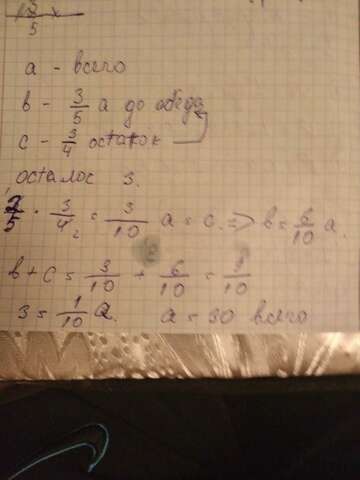 3/5
a - всего
b - 3/5 a до обеда
c - 3/4 остаток
осталос 3.
2/5 · 3/4 2 = 3/10 a = c. => b = 6/10 a.
b + c = 3/10 + 6/10 = 9/10
3 = 1/10 a. a = 30 всего